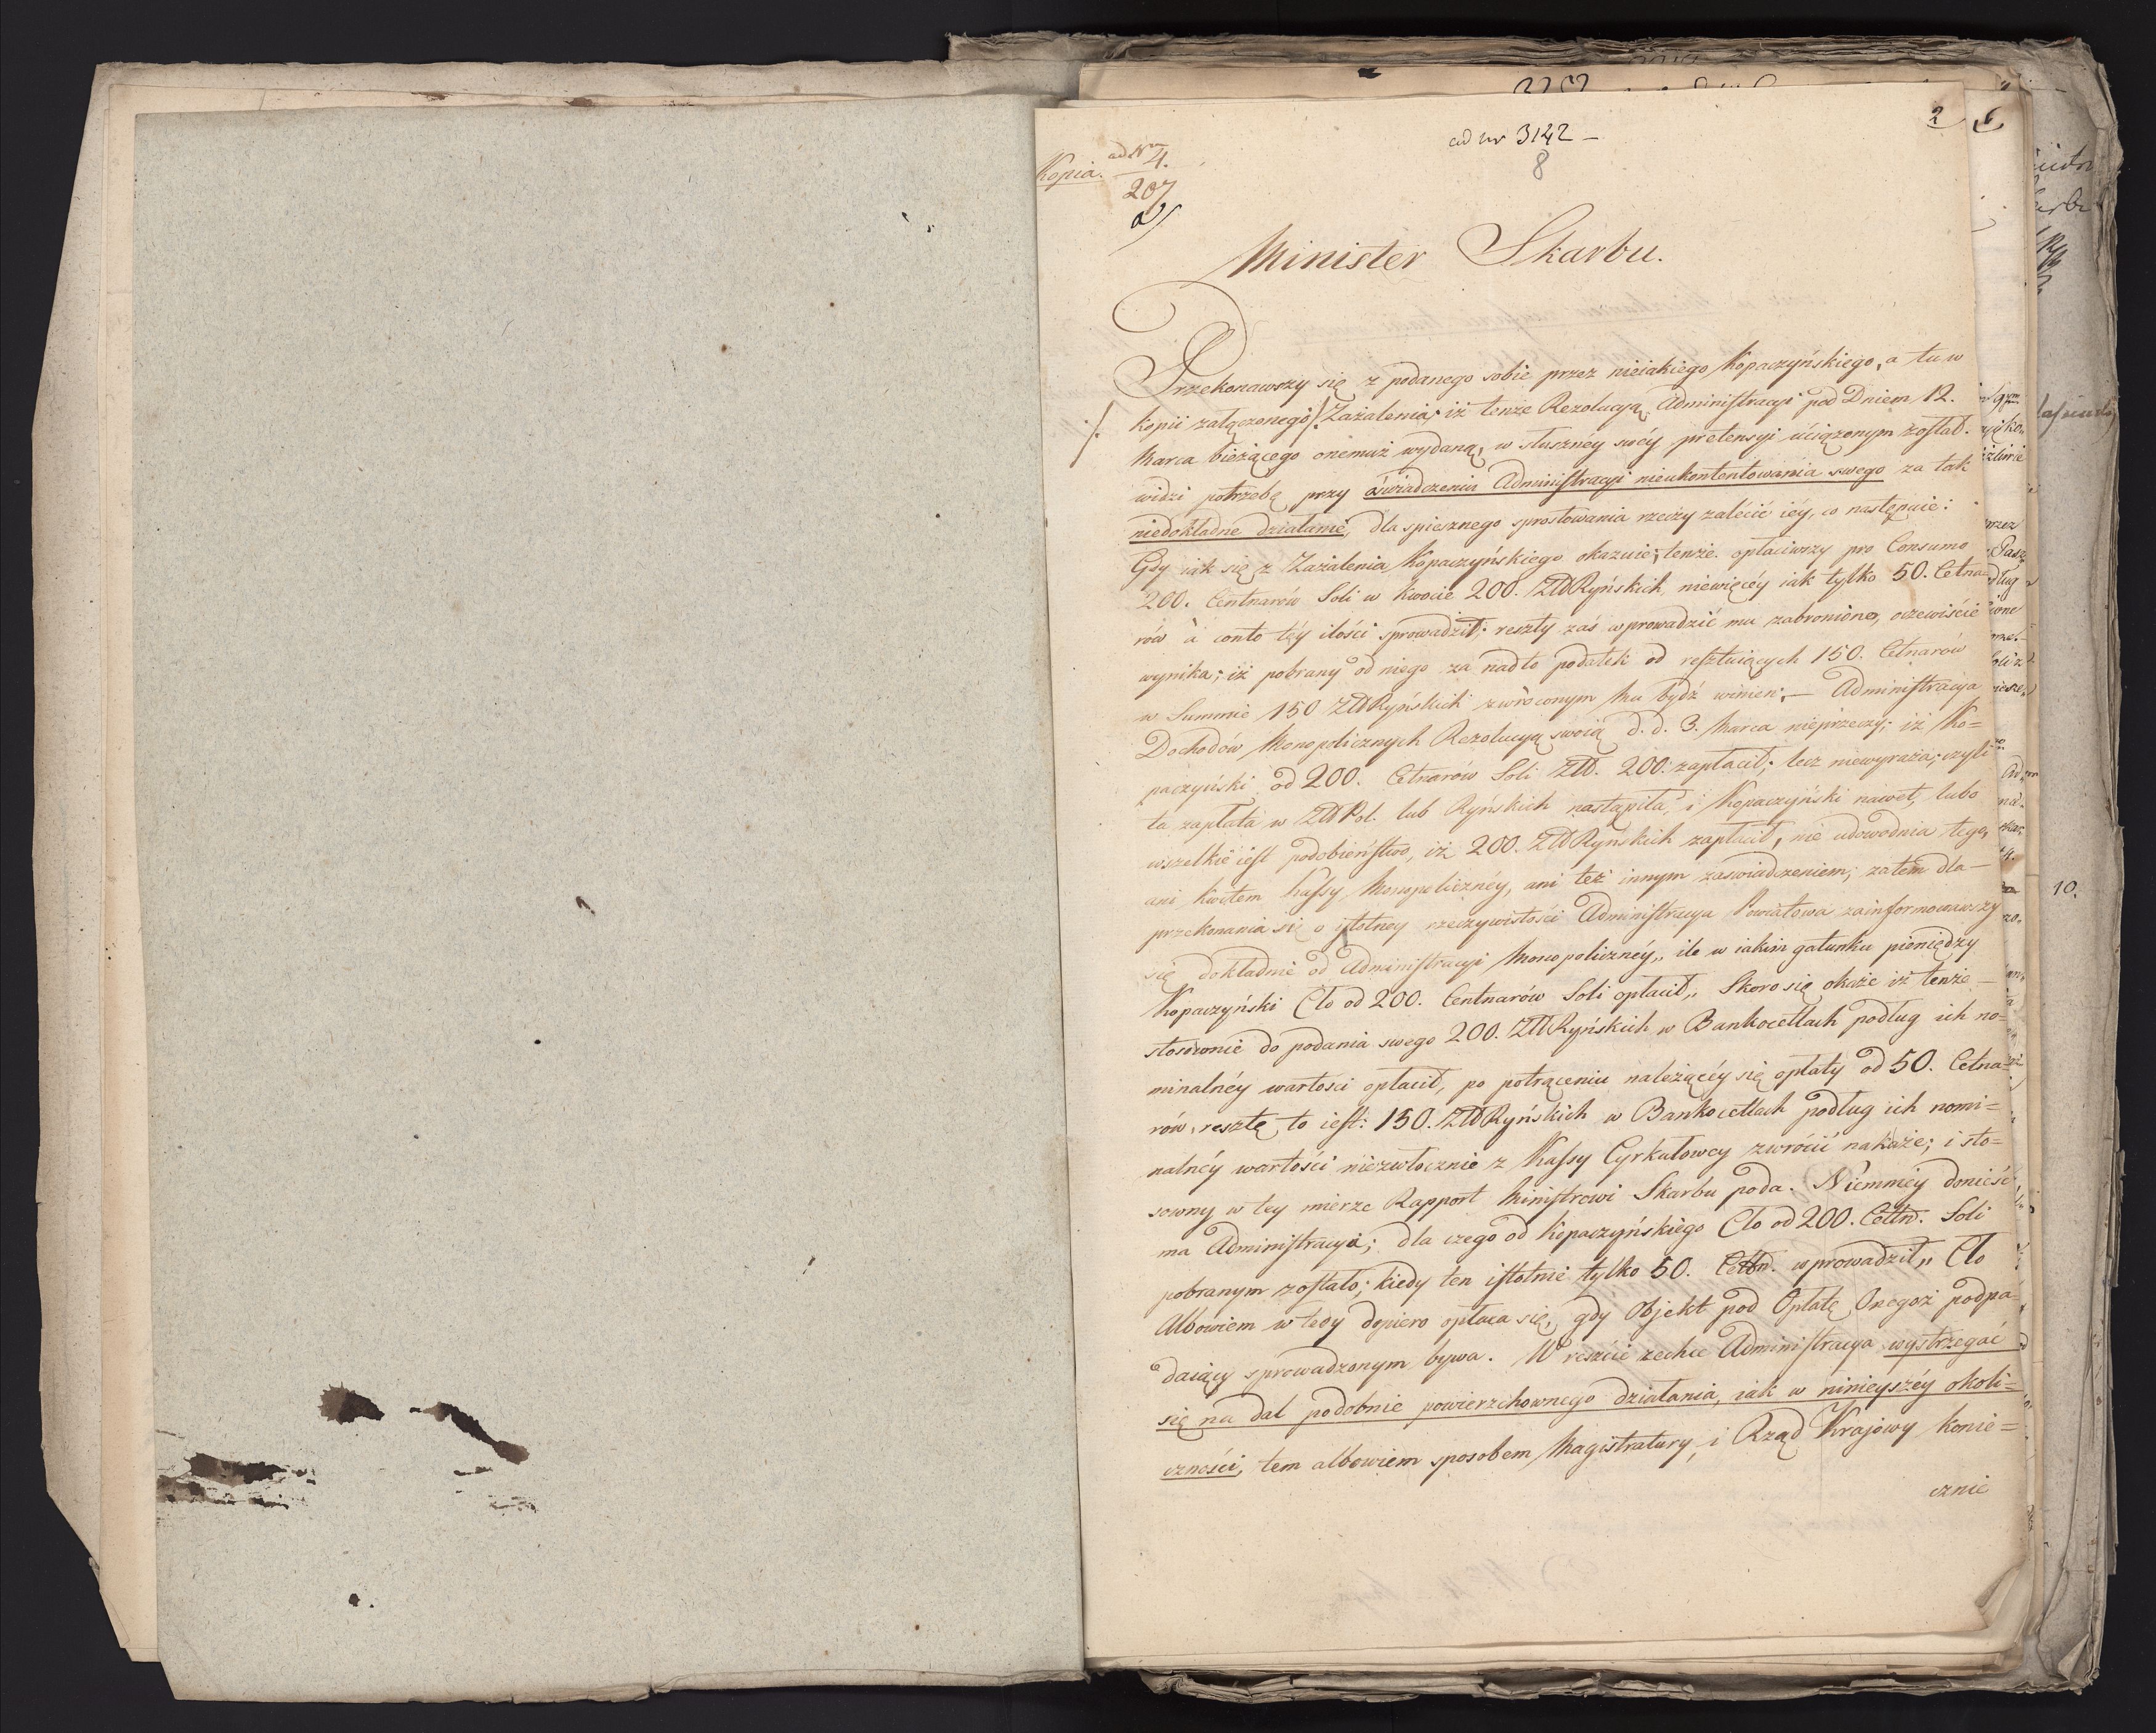 2
ad nr 3142 —
8
Kopia. ad Nrm 4.
207
a/
Minister Skarbu.
Przekonawszy się z podanego sobie przez nieiakiego Kopaczyńskiego, a tu w
kopii załączonego ·/. Zażalenia; iż tenże Rezolucyą Administracyi pod Dniem 12.
Marca bieżącego onemuż wydaną, w słuszney swéy pretensyi uciążonym został.
widzi potrzebę przy oświadczeniu Administracyi nieukontentowania swego za tak
niedokładne działanie, dla spiesznego sprostowania rzeczy zalécić iéy, co następuie:
Gdy iak się z Zażalenia Kopaczyńskiego okazuie; tenże opłaciwszy pro Consumo
200. Centnarów Soli w kwocie 200. ZłłRyńskich, niewięcéy iak tylko 50. Cetna=
rów à conto téy ilości sprowadził; reszty zaś wprowadzić mu zabroniono, oczewiście
wynika; iż pobrany od niego za nadto podatek od resztuiących 150. Cetnarów
w Summie 150 ZłłRyńskich zwróconym mu bydź winien; — Administracya
Dochodów Monopolicznych Rezolucyą swoią d. d. 3. Marca nieprzeczy; iż Ko=
paczyński od 200. Cetnarów Soli Złł. 200. zapłacił; lecz niewyraża; czyli
ta zapłata w ZłłPol. lub Ryńskich nastąpiła, i Kopaczyński nawet, lubo
wszelkie iest podobieństwo, iż 200. ZłłRyńskich zapłacił, nie udowodnia tego,
ani kwitem Kassy Monopolicznéy, ani też innym zaświadczeniem; zatém dla —
przekonania się o istotney rzeczywistości Administracya Powiatowa zainformowawszy
się dokładnie od Administracyi Monopolicznéy„ ile w iakim gatunku pieniędzy
Kopaczyński Cło od 200. Centnarów Soli opłacił„ Skoro się okaże iż tenże —
stosownie do podania swego 200. ZłłRyńskich w Bankocetlach podług ich no=
minalnéy wartosci opłacił, po potrąceniu należącéy się opłaty od 50. Cetna=
rów, resztę to iest: 150. ZłłRyńskich w Bankocetlach podług ich nomi=
nalnéy wartości niezwłocznie z Kassy Cyrkułowey zwrócić nakaże; i sto=
sowny w tey mierze Rapport Ministrowi Skarbu poda. Niemniéy donieść
ma Administracyia; dla czego od Kopaczyńskiego Cło od 200. Cettn. Soli
pobranym zostało; kiedy ten istotnie tylko 50. Cettn. wprowadził„ Cło
Albowiem w tedy dopiero opłaca się, gdy Objekt pod Opłatę Onegoż podpa=
daiący sprowadzonym bywa. W reszcie zechce Administracya wystrzegać
się na dal podobnie powierzchownego działania, iak w ninieyszéy okoli=
czności, tem albowiem sposobem Magistratury, i Rząd Krajowy konie=
cznie
10.